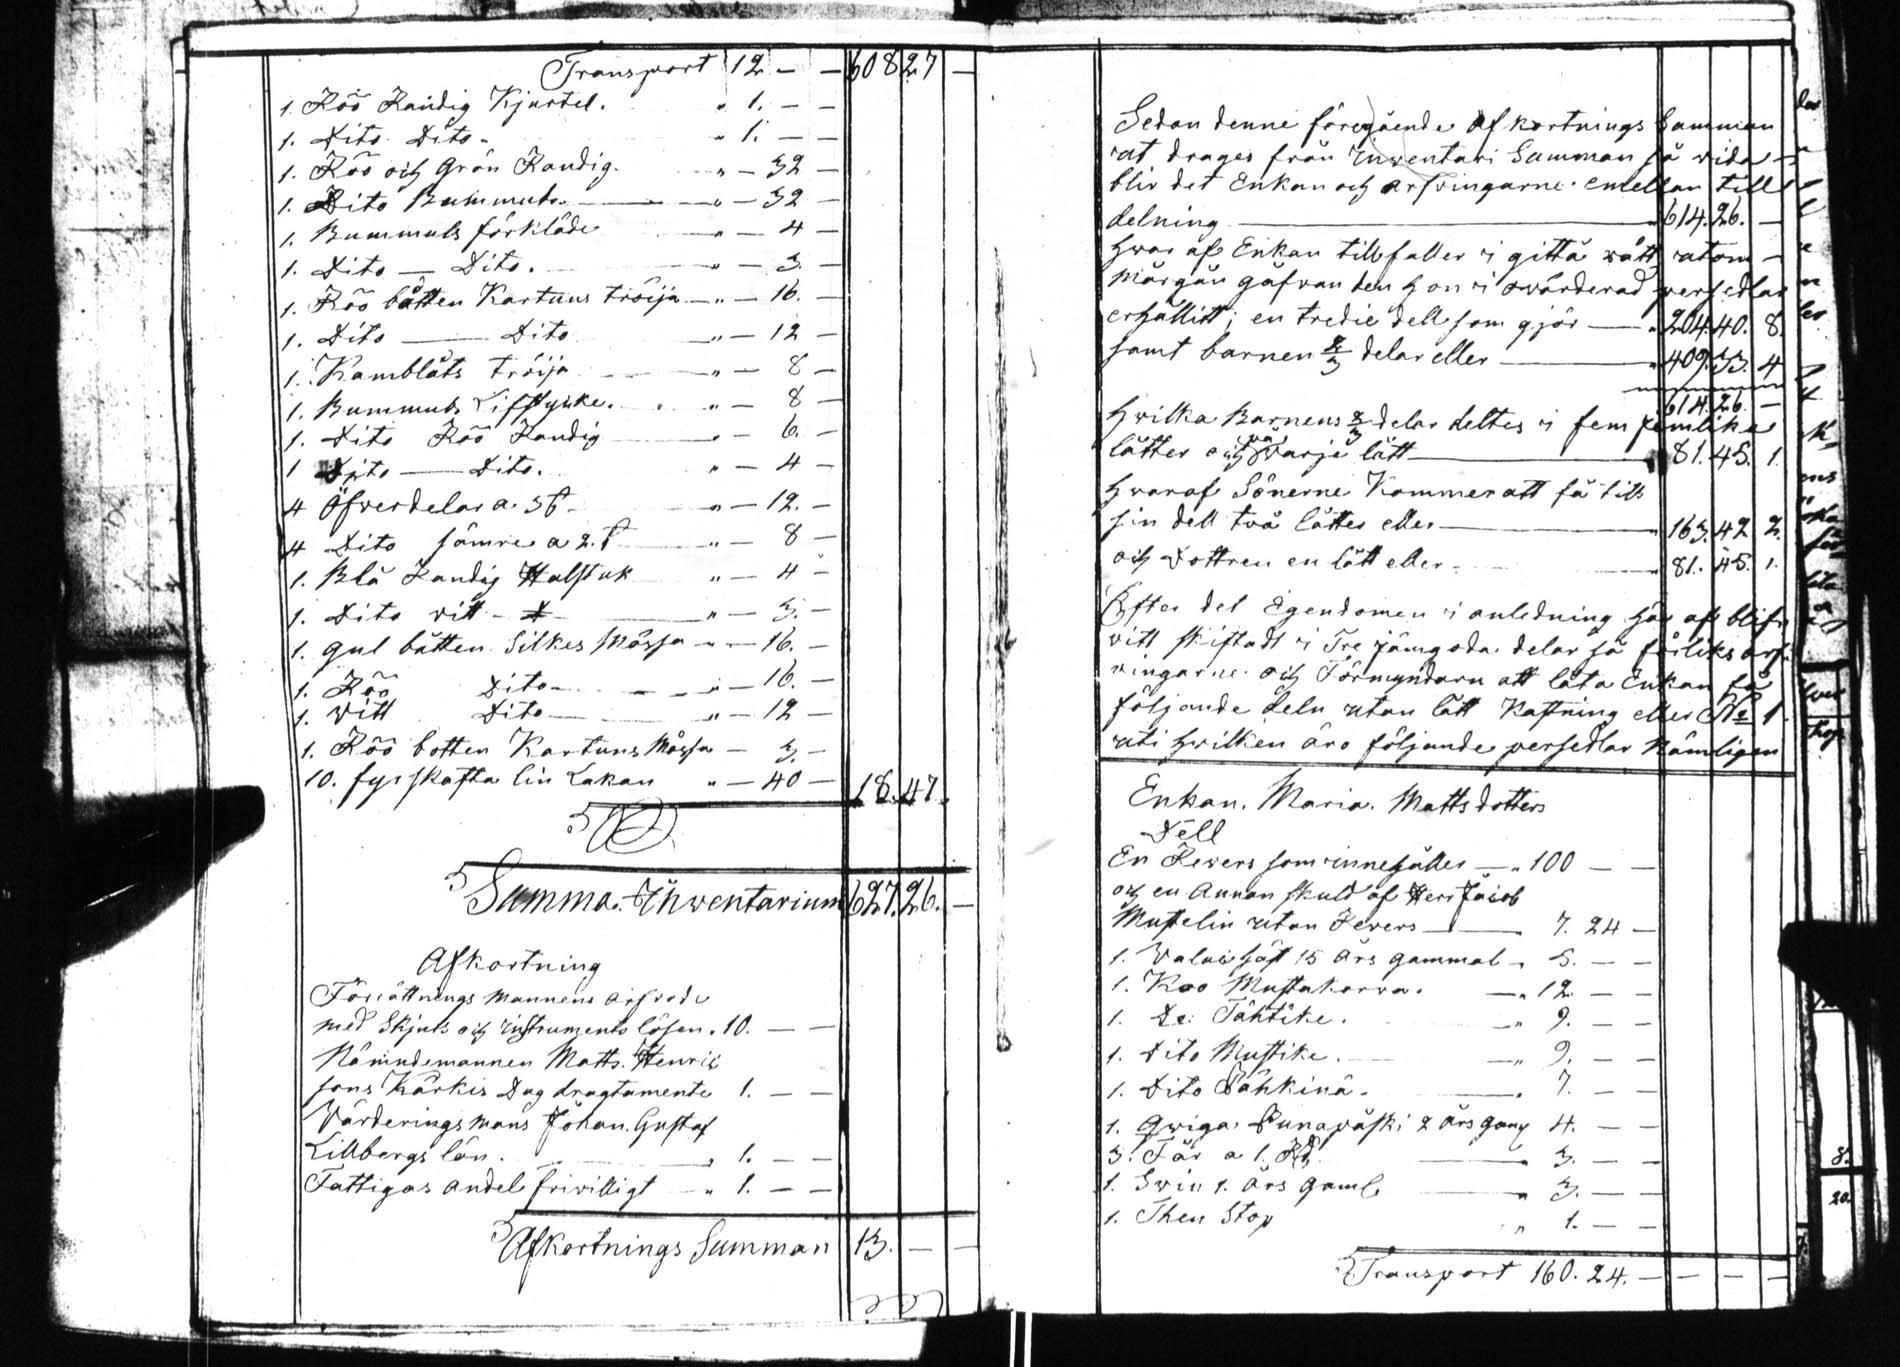 Transport 12 — — 608 27 —
1. Röö Randig Kjortel. " 1. — —
1. Dito Dito — " 1. — —
1. Röö och Grön Randig. " — 32 —
1. Dito Bummuls — " — 32 —
1. Bummuls förkläde " — 4 —
1. Dito — Dito. " — 3. —
1. Röö båtten Kartuns tröija — " — 16. —
1. Dito — Dito " — 12 —
1. Kamblåts tröija " — 8 —
1. Bummuls Lifstycke. " — 8 —
1. Dito Röö Randig " — 6. —
1 Dito — Dito. " — 4 —
4 Öfverdelar a. 3 s " — 12. —
4 Dito sämre a 2. s " — 8 —
1. Blå Randig Halsduk " — 4 —
1. Dito vitt — D " — 3. —
1. gul båtten Silkes Mössa " — 16. —
1. Röö Dito — " — 16. —
1. Vitt Dito — " — 12 —
1. Röö botten Kartuns Mössa — 3. —
10. fyrskafta lin Lakan " — 40 — 18. 47.
Summa. Inventarium 627. 26. —
Afkortning
Förrättnings Mannens arfvode
med Skjuts och instruments lösen. 10. — —
Nämndemannen Matts. Henrics
sons Kärkis Dag dragtamente 1. — —
Värderings mans Johan. Gustaf
Lillbergs lön. " 1. — —
Fattigas andel frivilligt " 1. — —
Afkortnings Summan 13. — —
Sedan denne föregående Afkortnings Summan
ut drages från Inventari Summan så vida
blir det Enkan och arfvingarne emellan till
delning — 614. 26. —
hvar af Enkan tillfaller i gifta rätt utom
Mårgån gåfvan den hon i ovärderad persedlar
erhållitt; en tredie dell som gjör — " 204. 40. 8.
samt barnen 2/3 delar eller — " 409. 33. 4
614. 26. —
hvilka Barnens 2/3 delar deltes i fem jemlika
låtter och varje lått — 81. 45. 1.
hvaraf Sönerne Kommer att få till
sin dell två låtter eller — 163. 42 2.
och Dottren en lått eller — " 81. 45. 1.
Efter det Egendomen i anledning här af blif
vitt skiftadt i Tre jämgoda delar så förliks arf
vingarne och Förmyndarn att låta Enkan få
följande deln utan lått Kastning eller No 1.
uti hvilken äro följande persedlar Nämligen
Enkan. Maria. Mattsdotters
Dell
En Revers som innehåller — " 100 — —
och en Annan skuld af Herr Jacob
Mustelin utan Revers — 7. 24 —
1. Valac häst 15 Års gammal " 5. — —
1. Koo Mustakorva. — " 12 — —
1. De: Tähtike. " 9. — —
1. Dito Mustike. — " 9. — —
1. Dito Pähkinä. " 7. — —
1. Qviga. Punapäski 2 års gaml 4. — —
3. Får a 1. Rd. " 3. — —
1. Svin 1. Års gaml. " 3. — —
1. Then Stop " 1. — —
Transport 160. 24. — — — —